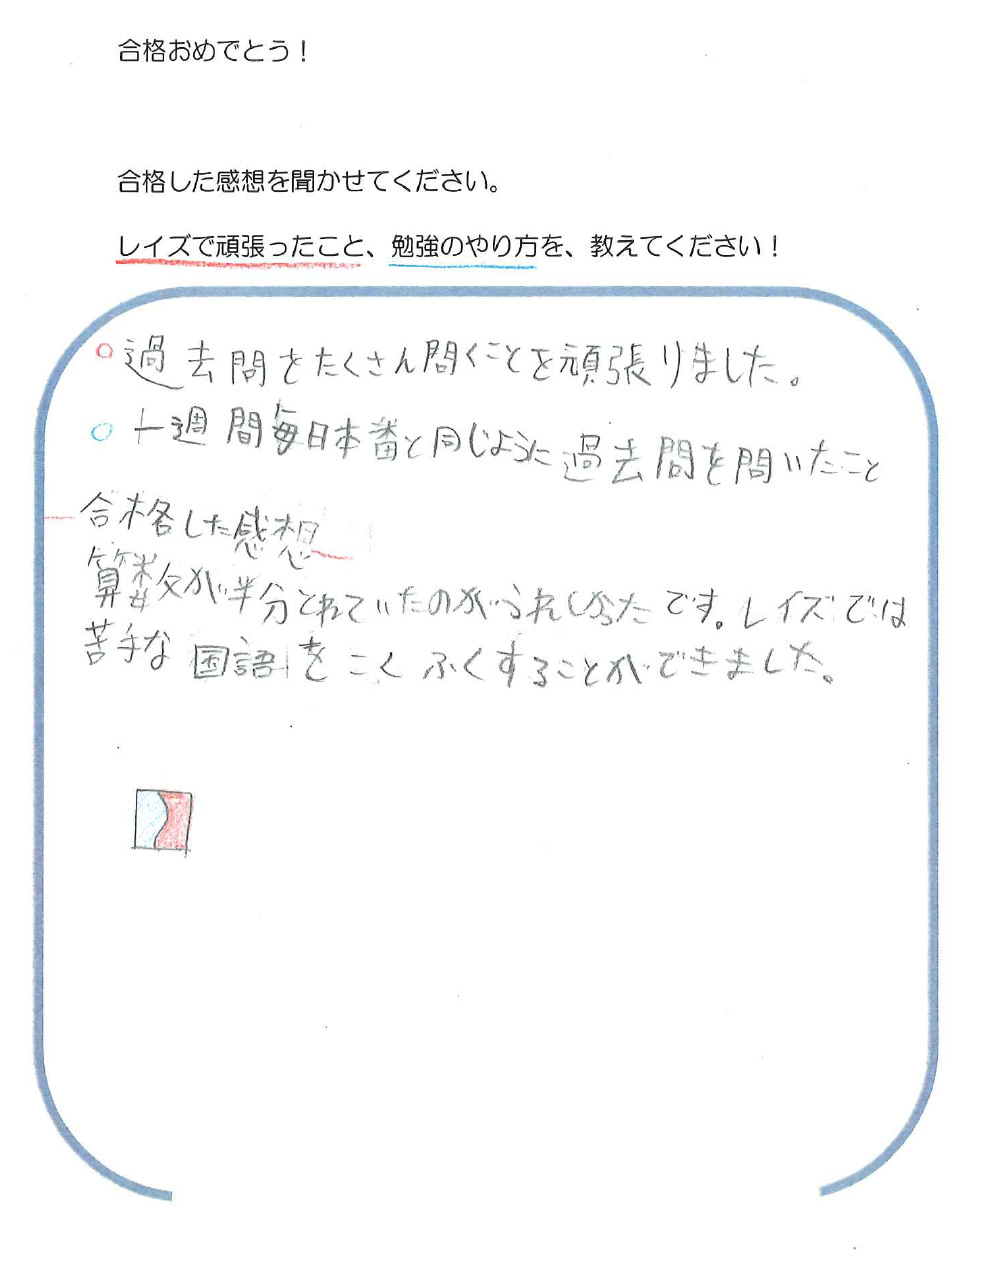 合格おめでとう！
合格した感想を聞かせてください。
レイズで頑張ったこと、勉強のやり方を、教えてください！
○過去問をたくさん問くことを頑張りました。
○一週間毎日本番と同じように過去問を問いたこと
合格した感想
算数が半分とれていたのがうれしかったです。レイズでは
苦手な国語をこくふくすることができました。